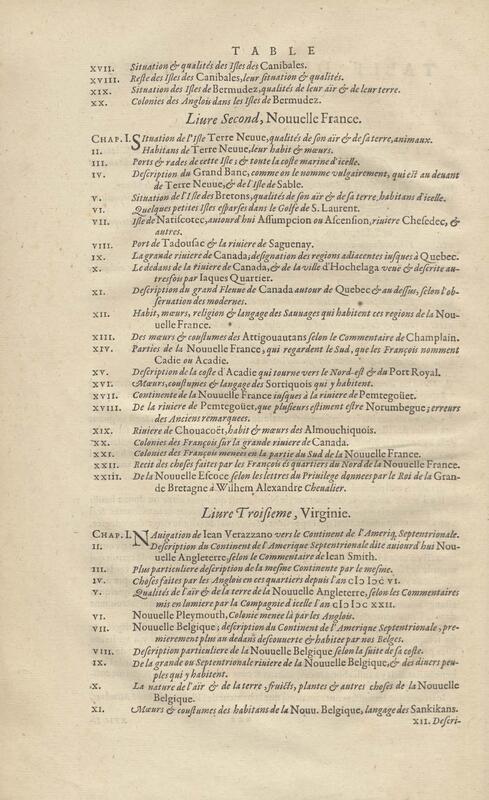 TABLE
XVII. Situation & qualités des Isles des Canibales.
XVIII. Reste des Isles des Canibales, leur situation & qualités.
XIX. Situation des Isles de Bermudez, qualités de leur air & de leur terre.
XX. Colonies des Anglois dans les Isles de Bermudez.
Liure Second, Nouuelle France.
CHAP. I. Situation de l'Isle Terre Neuue, qualités de son air & de sa terre, animaux.
II. Habitans de Terre Neuue, leur habit & mœurs.
III. Ports & rades de cette Isle; & toute la coste marine d'icelle.
IV. Description du Grand Banc, comme on le nomme vulgairement, qui est au deuant
de Terre Neuue, & de l'Isle de Sable.
V. Situation de l'Isle des Bretons, qualités de son air & de sa terre, habitans d'icelle.
VI. Quelques petites Isles esparses dans le Golfe de S. Laurent.
VII. Isle de Natiscotec, auiourd'hui Assumpcion ou Ascension, riuiere Chesedec, &
autres.
VIII. Port de Tadousac & la riuiere de Saguenay.
IX. La grande riuiere de Canada; designation des regions adiacentes iusques à Quebec.
X. Le dedans de la riuiere de Canada, & de la ville d'Hochelaga veuë & descrite au-
tresfois par Iaques Quartier.
XI. Description du grand Fleuue de Canada autour de Quebec & au dessus, selon l'ob-
seruation des modernes.
XII. Habit, mœurs, religion & langage des Sauuages qui habitent ces regions de la Nou-
uelle France.
XIII. Des mœurs & coustumes des Attigouautans selon le Commentaire de Champlain.
XIV. Parties de la Nouuelle France, qui regardent le Sud, que les François nomment
Cadie ou Acadie.
XV. Description de la coste d'Acadie qui tourne vers le Nord-est & du Port Royal.
XVI. Mœurs, coustumes & langage des Sortiquois qui y habitent.
XVII. Continente de la Nouuelle France iusques à la riuiere de Pemtegoüet.
XVIII. De la riuiere de Pemtegoüet, que plusieurs estiment estre Norumbegue; erreurs
des Anciens remarquees.
XIX. Riuiere de Chouacoët, habit & mœurs des Almouchiquois.
XX. Colonies des François sur la grande riuiere de Canada.
XXI. Colonies des François menees en la partie du Sud de la Nouuelle France.
XXII. Recit des choses faites par les François és quartiers du Nord de la Nouuelle France.
XXIII. De la Nouuelle Escoce selon les lettres du Priuilege données par le Roi de la Gran-
de Bretagne à Wilhem Alexandre Cheualier.
Liure Troisieme, Virginie.
CHAP. I. Nauigation de Iean Verazzano vers le Continent de l'Ameriq. Septentrionale.
II. Description du Continent de l'Amerique Septentrionale dite auiourd'hui Nou-
uelle Angleterre, selon le Commentaire de Iean Smith.
III. Plus particuliere description de la mesme Continente par le mesme.
IV. Choses faites par les Anglois en ces quartiers depuis l'an cIↄ Iↄc VI.
V. Qualités de l'air & de la terre de la Nouuelle Angleterre, selon les Commentaires
mis en lumiere par la Compagnie d'icelle l'an cIↄ Iↄc XXII.
VI. Nouuelle Pleymouth, Colonie menee là par les Anglois.
VII. Nouuelle Belgique; description du Continent de l'Amerique Septentrionale, pre-
mierement plus au dedans descouuerte & habitee par nos Belges.
VIII. Description particuliere de la Nouuelle Belgique selon la suite de sa coste.
IX. De la grande ou Septentrionale riuiere de la Nouuelle Belgique, & des diuers peu-
ples qui y habitent.
X. La nature de l'air & de la terre, fruicts, plantes & autres choses de la Nouuelle
Belgique.
XI. Mœurs & coustumes des habitans de la Nouu. Belgique, langage des Sankikans.
XII. Descri-